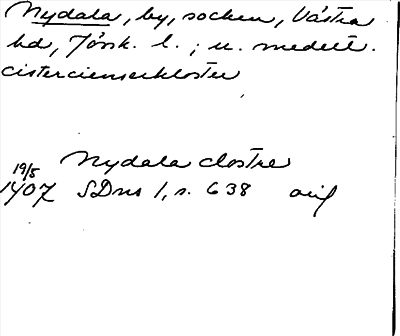 Nydala, by, socken, Västra
hd, Jönk. l.; u. medelt.
cistercienserkloster
Nydala clostre
19/5
1407 SDns 1, s. 638 orig